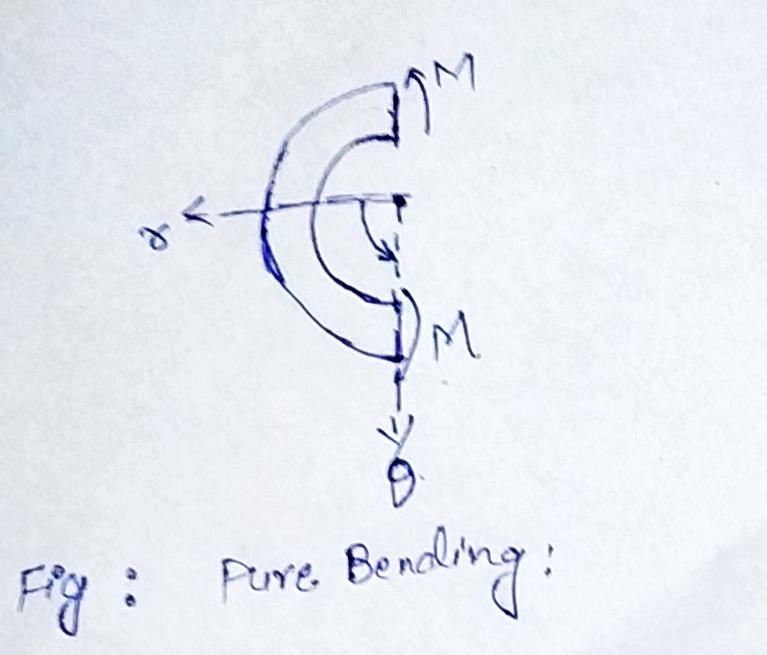 M
r
M
θ
Fig : Pure Bending :